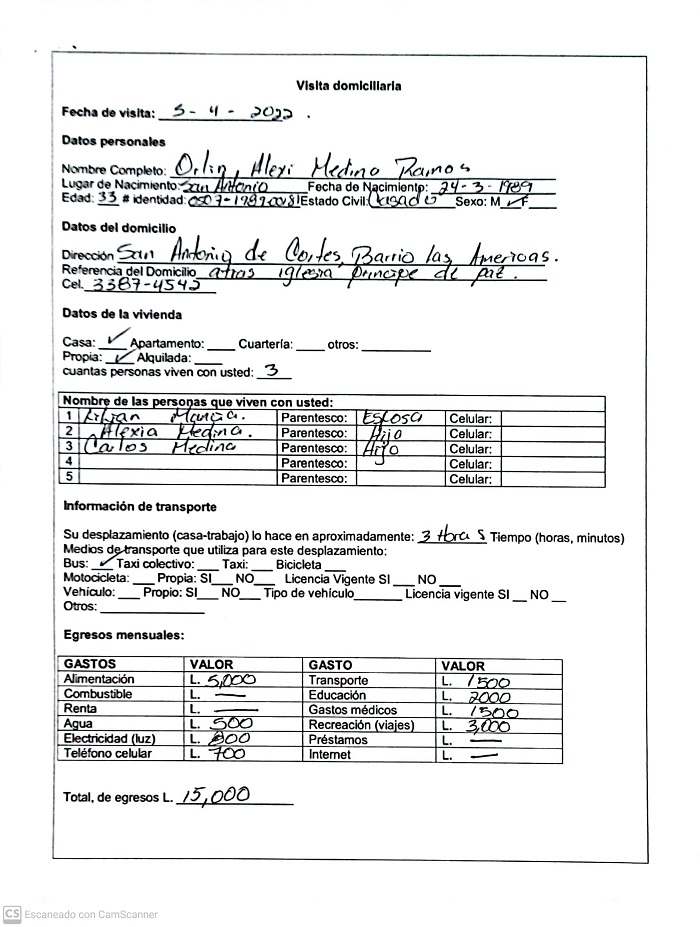 Visita domiciliaria
Fecha de visita: 5-4-2022.
Datos personales
Nombre Completo: Orlin Alexi Medina Ramos
Lugar de Nacimiento: San Antonio Fecha de Nacimiento: 24-3-1989
Edad: 33 # identidad: Estado Civil: Casado Sexo: M ✓ F
Datos del domicilio
Dirección San Antonio de Cortes, Barrio las Americas.
Referencia del Domicilio atras iglesia principe de paz.
Cel. 3387-4542
Datos de la vivienda
Casa: ✓ Apartamento: ____ Cuartería: ____ otros: ____
Propia: ✓ Alquilada: ____
cuantas personas viven con usted: 3
Nombre de las personas que viven con usted:
1 Lilian Parentesco: Esposa Celular:
2 Alexia Medina. Parentesco: Hijo Celular:
3 Carlos Medina Parentesco: Hijo Celular:
4 Parentesco: Celular:
5 Parentesco: Celular:
Información de transporte
Su desplazamiento (casa-trabajo) lo hace en aproximadamente: 3 Horas Tiempo (horas, minutos)
Medios de transporte que utiliza para este desplazamiento:
Bus: ✓ Taxi colectivo: ____ Taxi: ____ Bicicleta ____
Motocicleta: ____ Propia: SI ____ NO ____ Licencia Vigente SI ____ NO ____
Vehículo: ____ Propio: SI ____ NO ____ Tipo de vehículo ____ Licencia vigente SI __ NO __
Otros: ____
Egresos mensuales:
GASTOS VALOR GASTO VALOR
Alimentación L. 5,000 Transporte L. 1500
Combustible L. — Educación L. 2000
Renta L. — Gastos médicos L. 1500
Agua L. 500 Recreación (viajes) L. 3,000
Electricidad (luz) L. 800 Préstamos L. —
Teléfono celular L. 700 Internet L. —
Total, de egresos L. 15,000
CS Escaneado con CamScanner